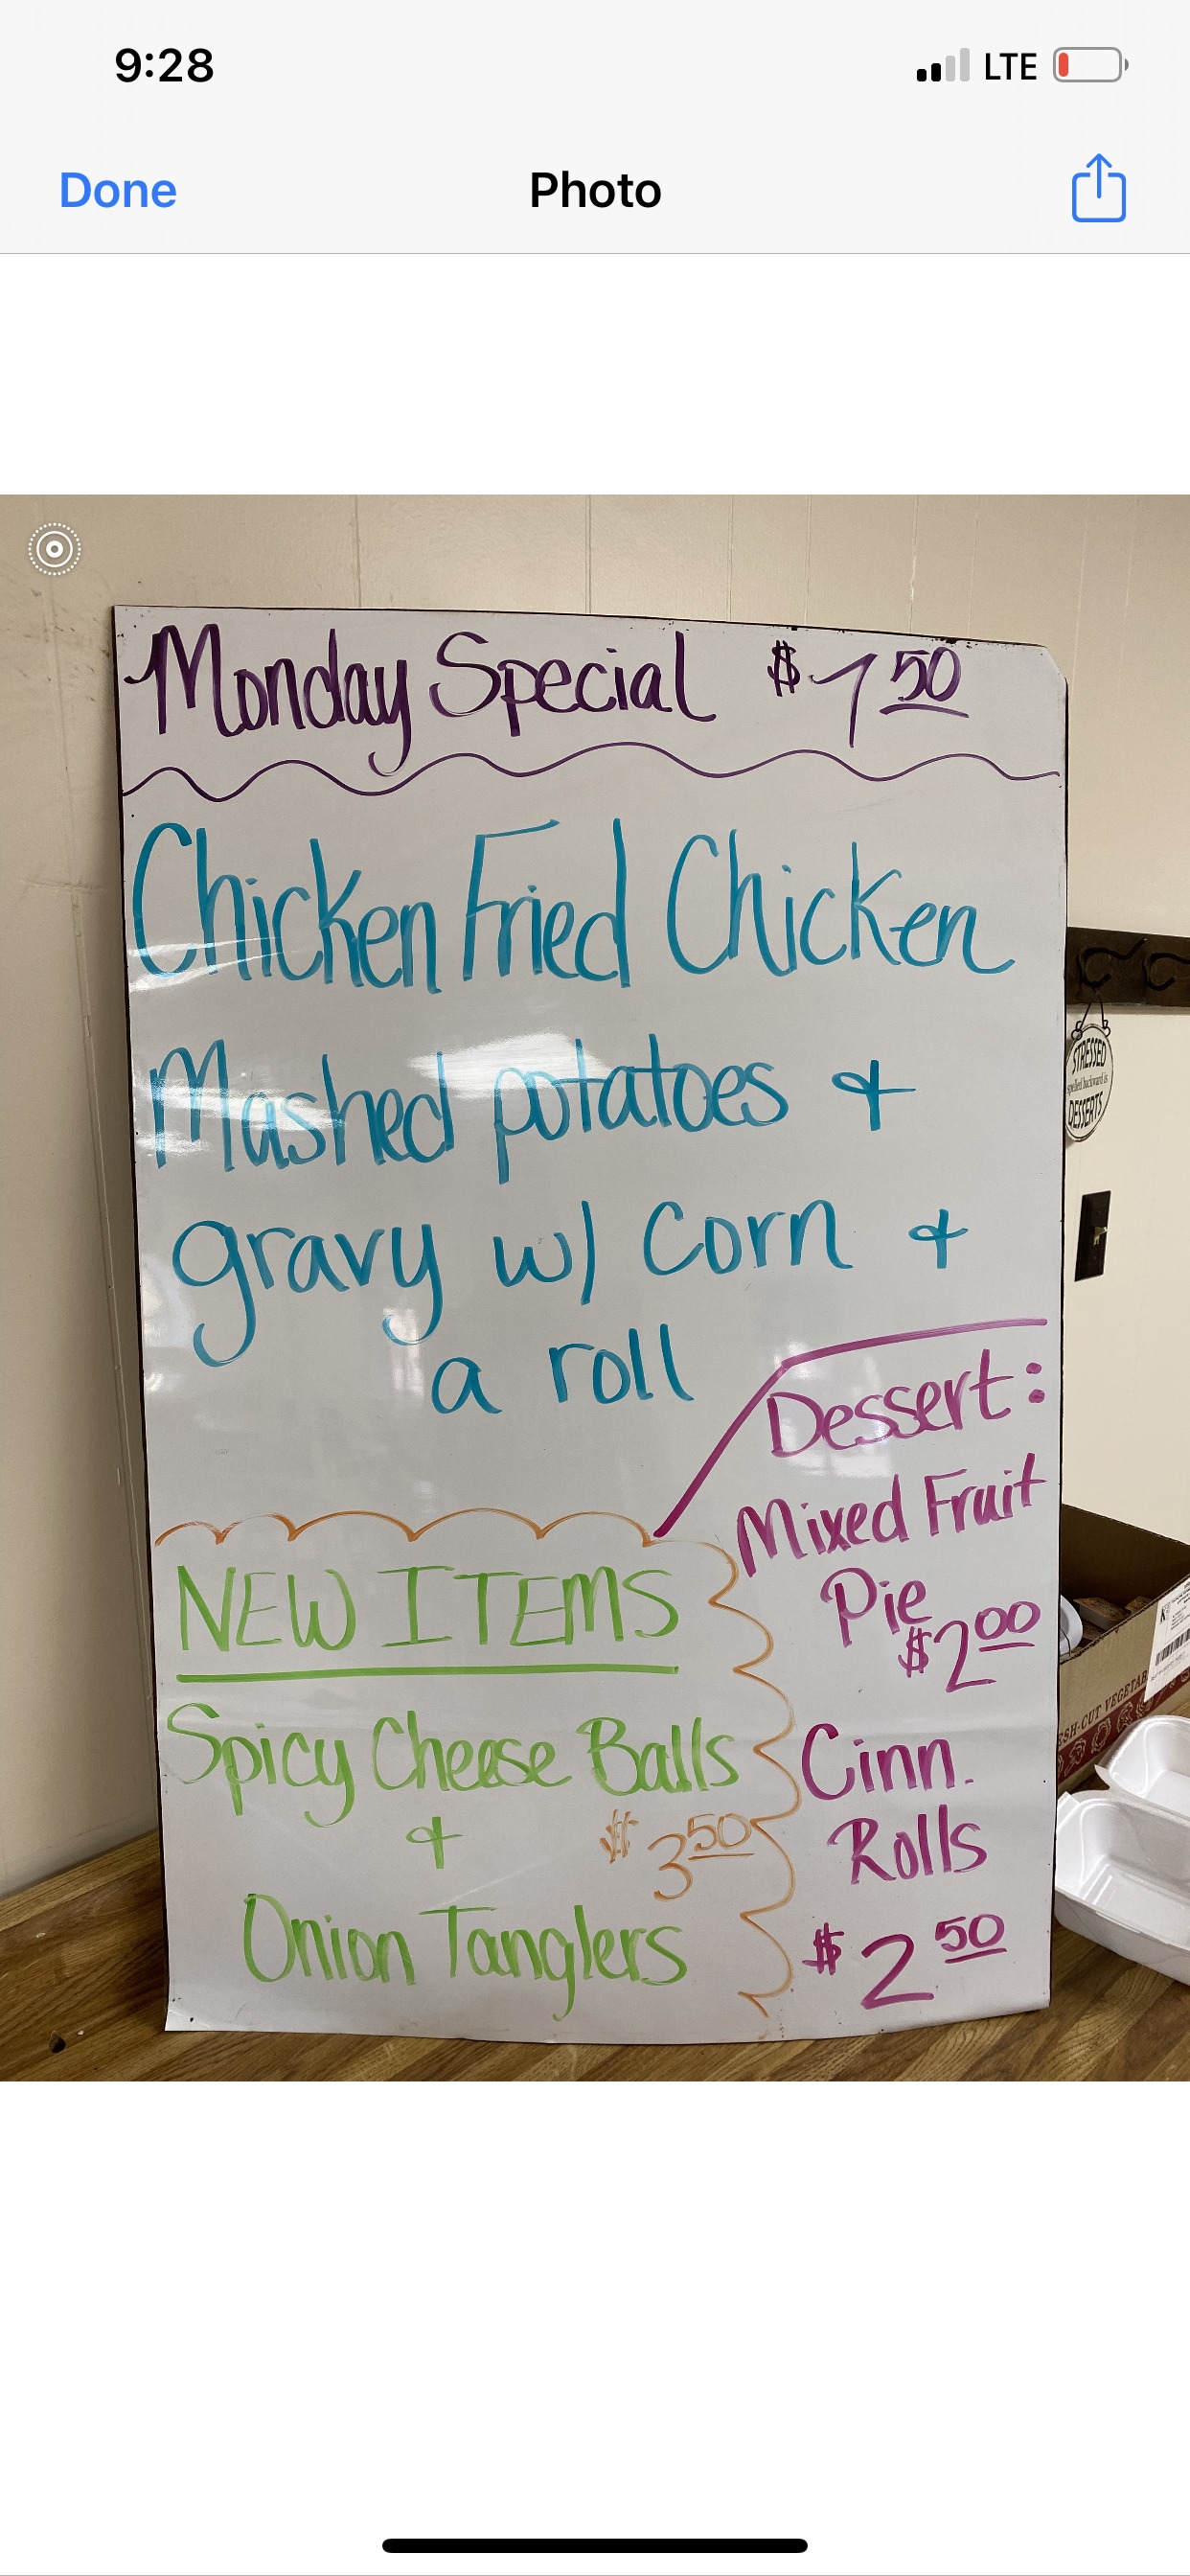 9:28
LTE
Done
Photo
Monday Special $7 50
Chicken Fried Chicken
Mashed potatoes &
gravy w/ Corn &
a roll
Dessert:
Mixed Fruit
Pie
$2 00
Cinn.
Rolls
$2 50
NEW ITEMS
Spicy Cheese Balls
& $3 50
Onion Tanglers
STRESSED
spelled backward is
DESSERTS
SH-CUT VEGETAB